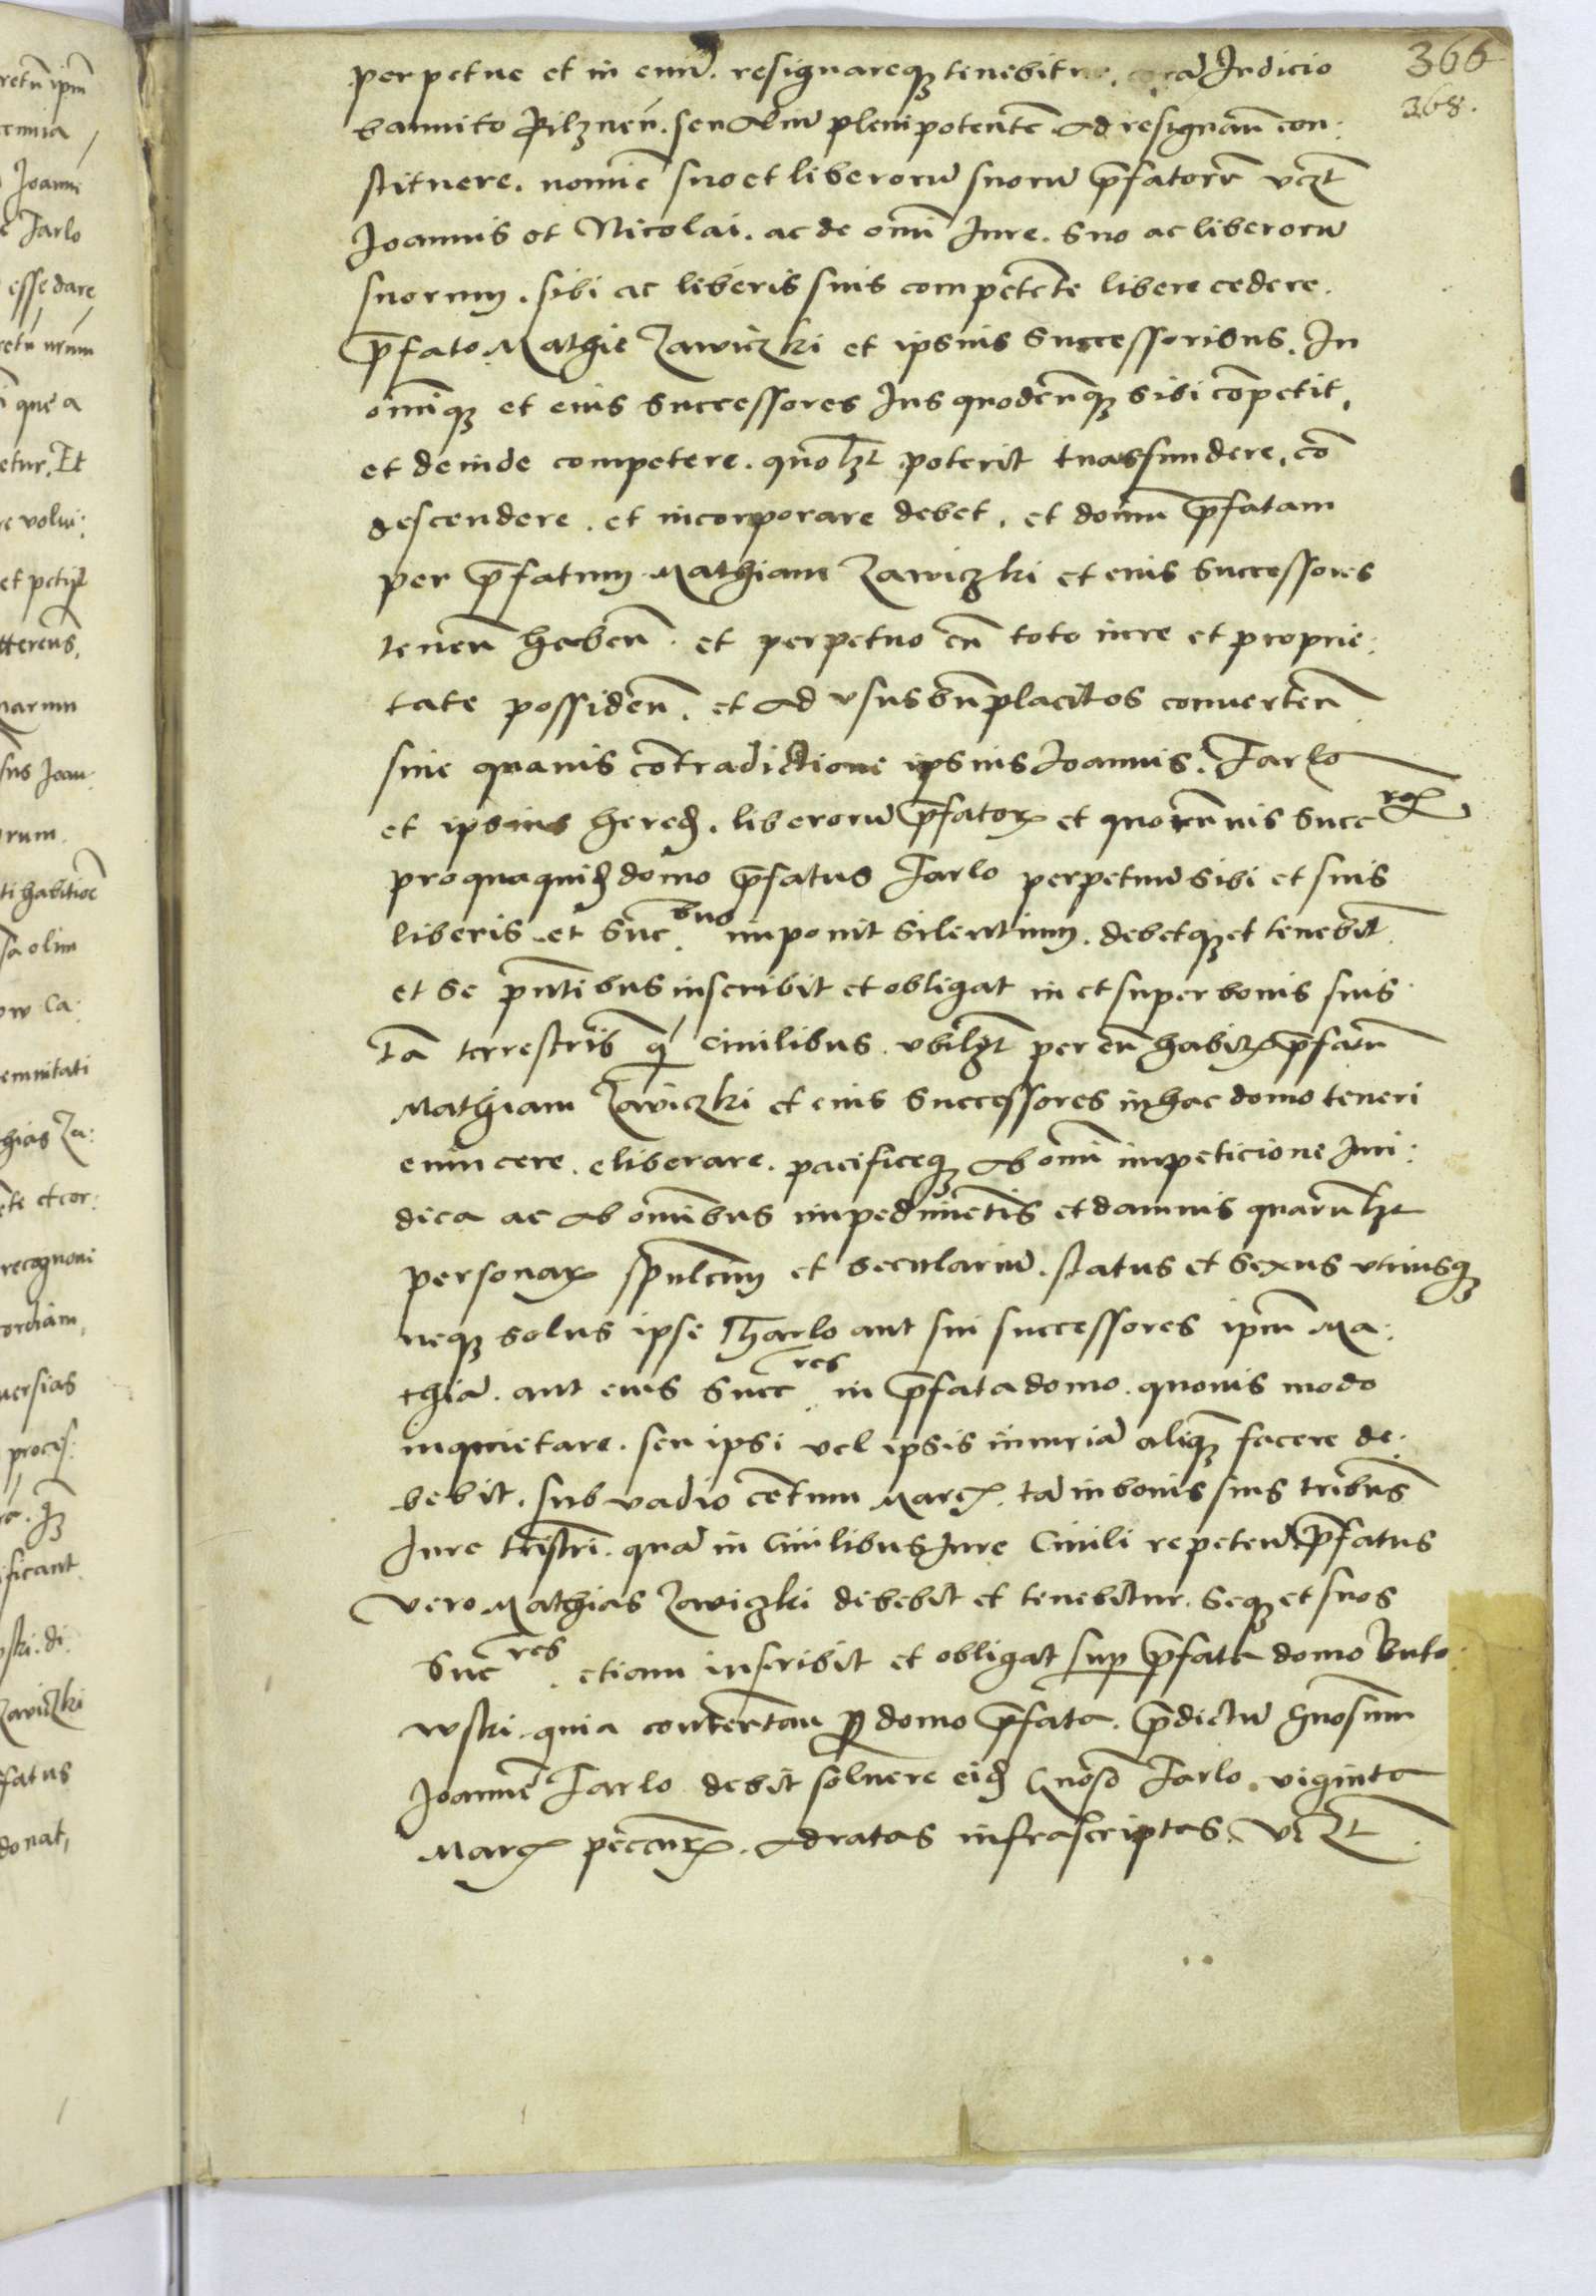 366
368.
perpetue et in euu͂. resignareqꝫ tenebitur. cora͂ Iudicio
bannito Pilznen͂. seu aliu͂ plenipotente͂ ad resignan͂ con:
stituere. nomi͂e suo et liberoru͂ suoru͂ p͂fatoru͂ vcꝫt
Joannis et Nicolai. ac de om͂i Iure. suo ac liberoru͂
suorum. sibi ac liberis suis competente libere cedere.
p͂fato Mathie Zawiczki et ipsius successoribus. In
om͂iqꝫ et eius successores Ius quodcu͂qꝫ sibi co͂petit,
et deinde competere. quol̄ꝫt poterit transfundere, co͂
descendere. et incorporare debet. et domu͂ p͂fatam
per p͂fatum Mathiam Zawiczki et eius successores
tenen͂ haben͂. et perpetuo cu͂ toto iure et proprie:
tate possiden͂. et ad vsus bn͂placitos conuerten͂
sine quauis co͂tradictione ipsius Joannis. Tarlo
et ipsius hered̄. liberoru͂ p͂fatorꝝ et quoru͂uis succ rꝝ
pro qua quid̄ domo p͂fatus Tarlo perpetuu͂ sibi et suis
liberis et suc͂. bus imponit silentium. debetqꝫ et tenebit͂
et se pn͂tibus inscribit et obligat in et super bonis suis
ta͂ terrestrib͂ q͂ ciuilibus vbil̄ꝫt per eu͂ habitꝝ p͂fatu͂
Mathiam Zawiczki et eius successores in hac domo teneri
euincere. eliberare. pacificeqꝫ ab om͂i impeticione Iuri:
dica ac ab om͂ibus impedime͂tis et damnis quaru͂l̄ꝫt
personarꝝ spu͂lcium et seculariu͂. status et sexus vtriusqꝫ
neqꝫ solus ipse Tharlo aut sui successores ipm͂ Ma:
thia͂. aut eius succ res. in p͂fata domo. quouis modo
inquietare. seu ipsi vel ipsis iniuria͂ aliqua͂ facere de:
bebit. sub vadio ce͂tum Marcꝝ. ta͂ in bonis suis tr͂ibus
Iure tr͂istri. qua͂ in Ciuilibus Iure Ciuili repeten͂ p͂fatus
vero Mathias Zawiczki debebit et tenebitur. seqꝫ et suos
suc͂ res. etiam inscribit et obligat sup p͂fata domo Buto:
wski. quia contentan͂ ꝓ domo p͂fata. p͂dictu͂ Gn͂osum
Joanne͂ Tarlo debit soluere eid̄ Gn͂oso Tarlo. viginta
Marcꝝ peccu͂rꝝ. ad ratas infrascriptas. vcꝫt